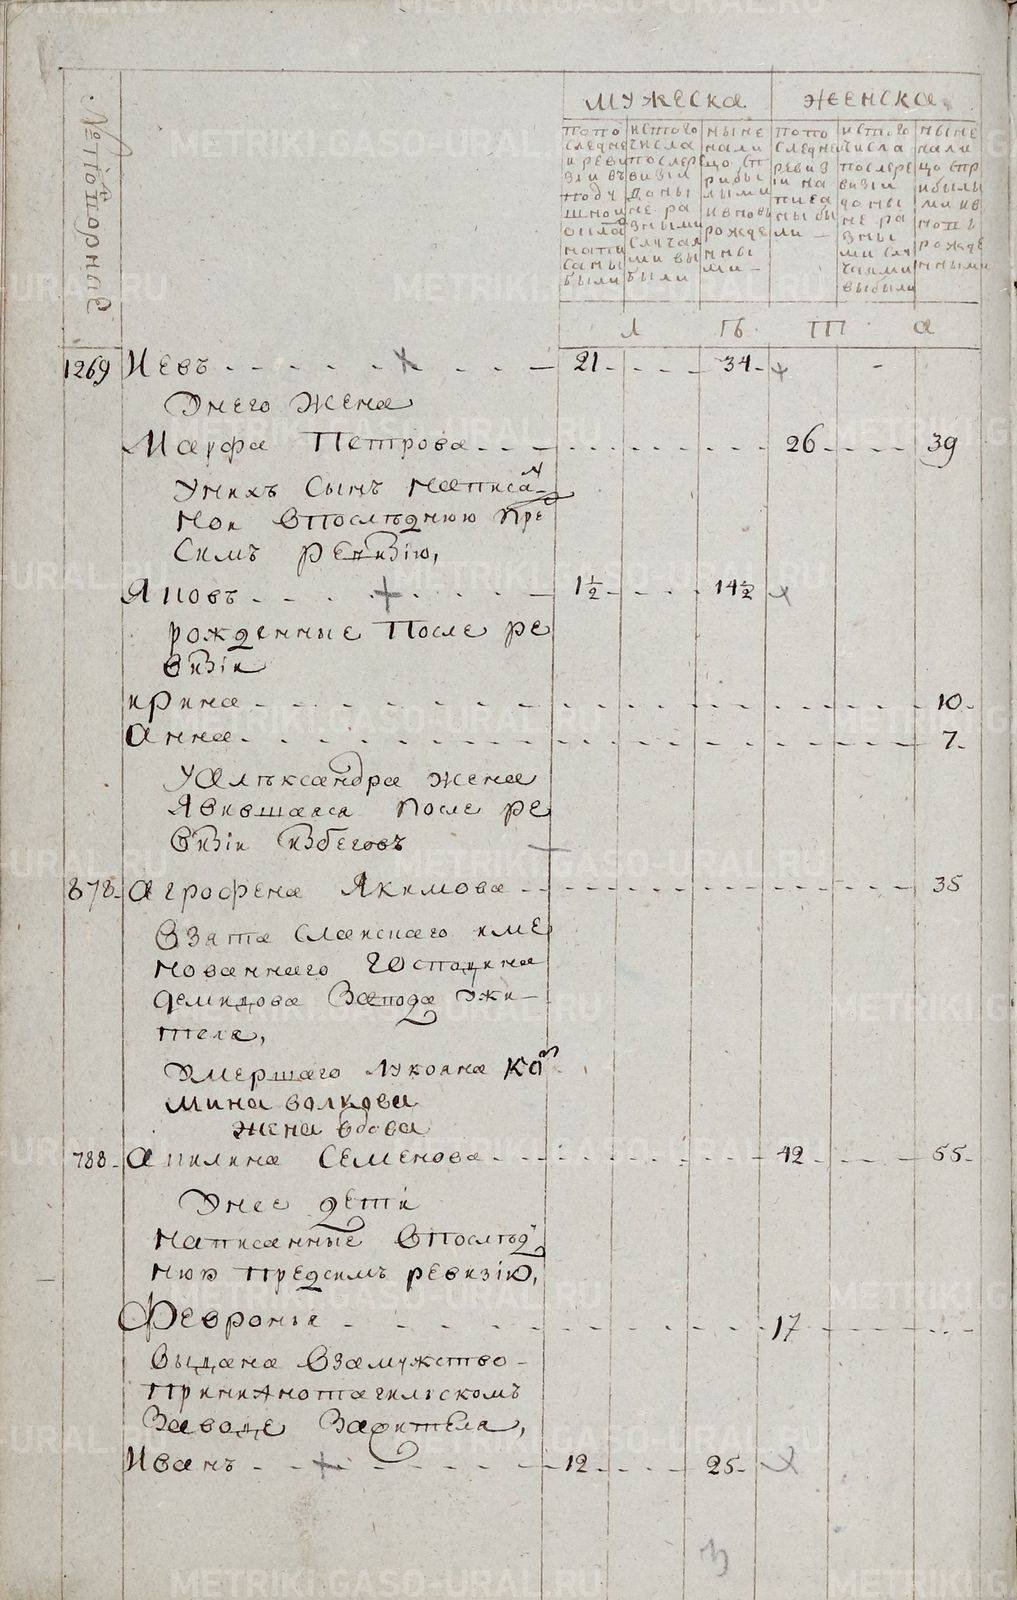 МУЖЕСКА ЖЕНСКА
№ подворнае
попо следне и реви зіи въ подꙋ шнои окла напи саны были
истого числа послере визіи доны не ра зными случая ми вы были
ныне нали цо сп рибы лыми ивновь рожде нны ми
попо следне ревиз іи на писа ны бы ли
истого числа послере визіи доны не ра зны ми слу чаями выбыли
ныне нали цо спр ибыли ми ив новь рожде нными
л ѣ т а
1269 Иевъ 21 34
Унего жена
Марфа Петрова 26 39
Унихъ сынъ написа
нои впоследнюю пре
симъ ревизію,
Яковъ 1½ 14½
рожденные После ре
визіи
ирина 10
Анна 7
Уалѣксандра жена
Явившаяся После ре
визіи избеговъ
878 аграфена Якимова 35
Взята слаискаго име
нованнаго Господина
демидова Завода жи
теля,
Умершаго Лукояна Каз
мина волкова
жена вдова
788 акилина Семенова 42 55
Унее дети
написанные впослѣд
нюю предсимъ ревизію,
Февронья 17
выдана Взамужство
принижнотагильскомъ
Заводе Зажителя,
Иванъ 12 25
METRIKI.GASO-URAL.RU